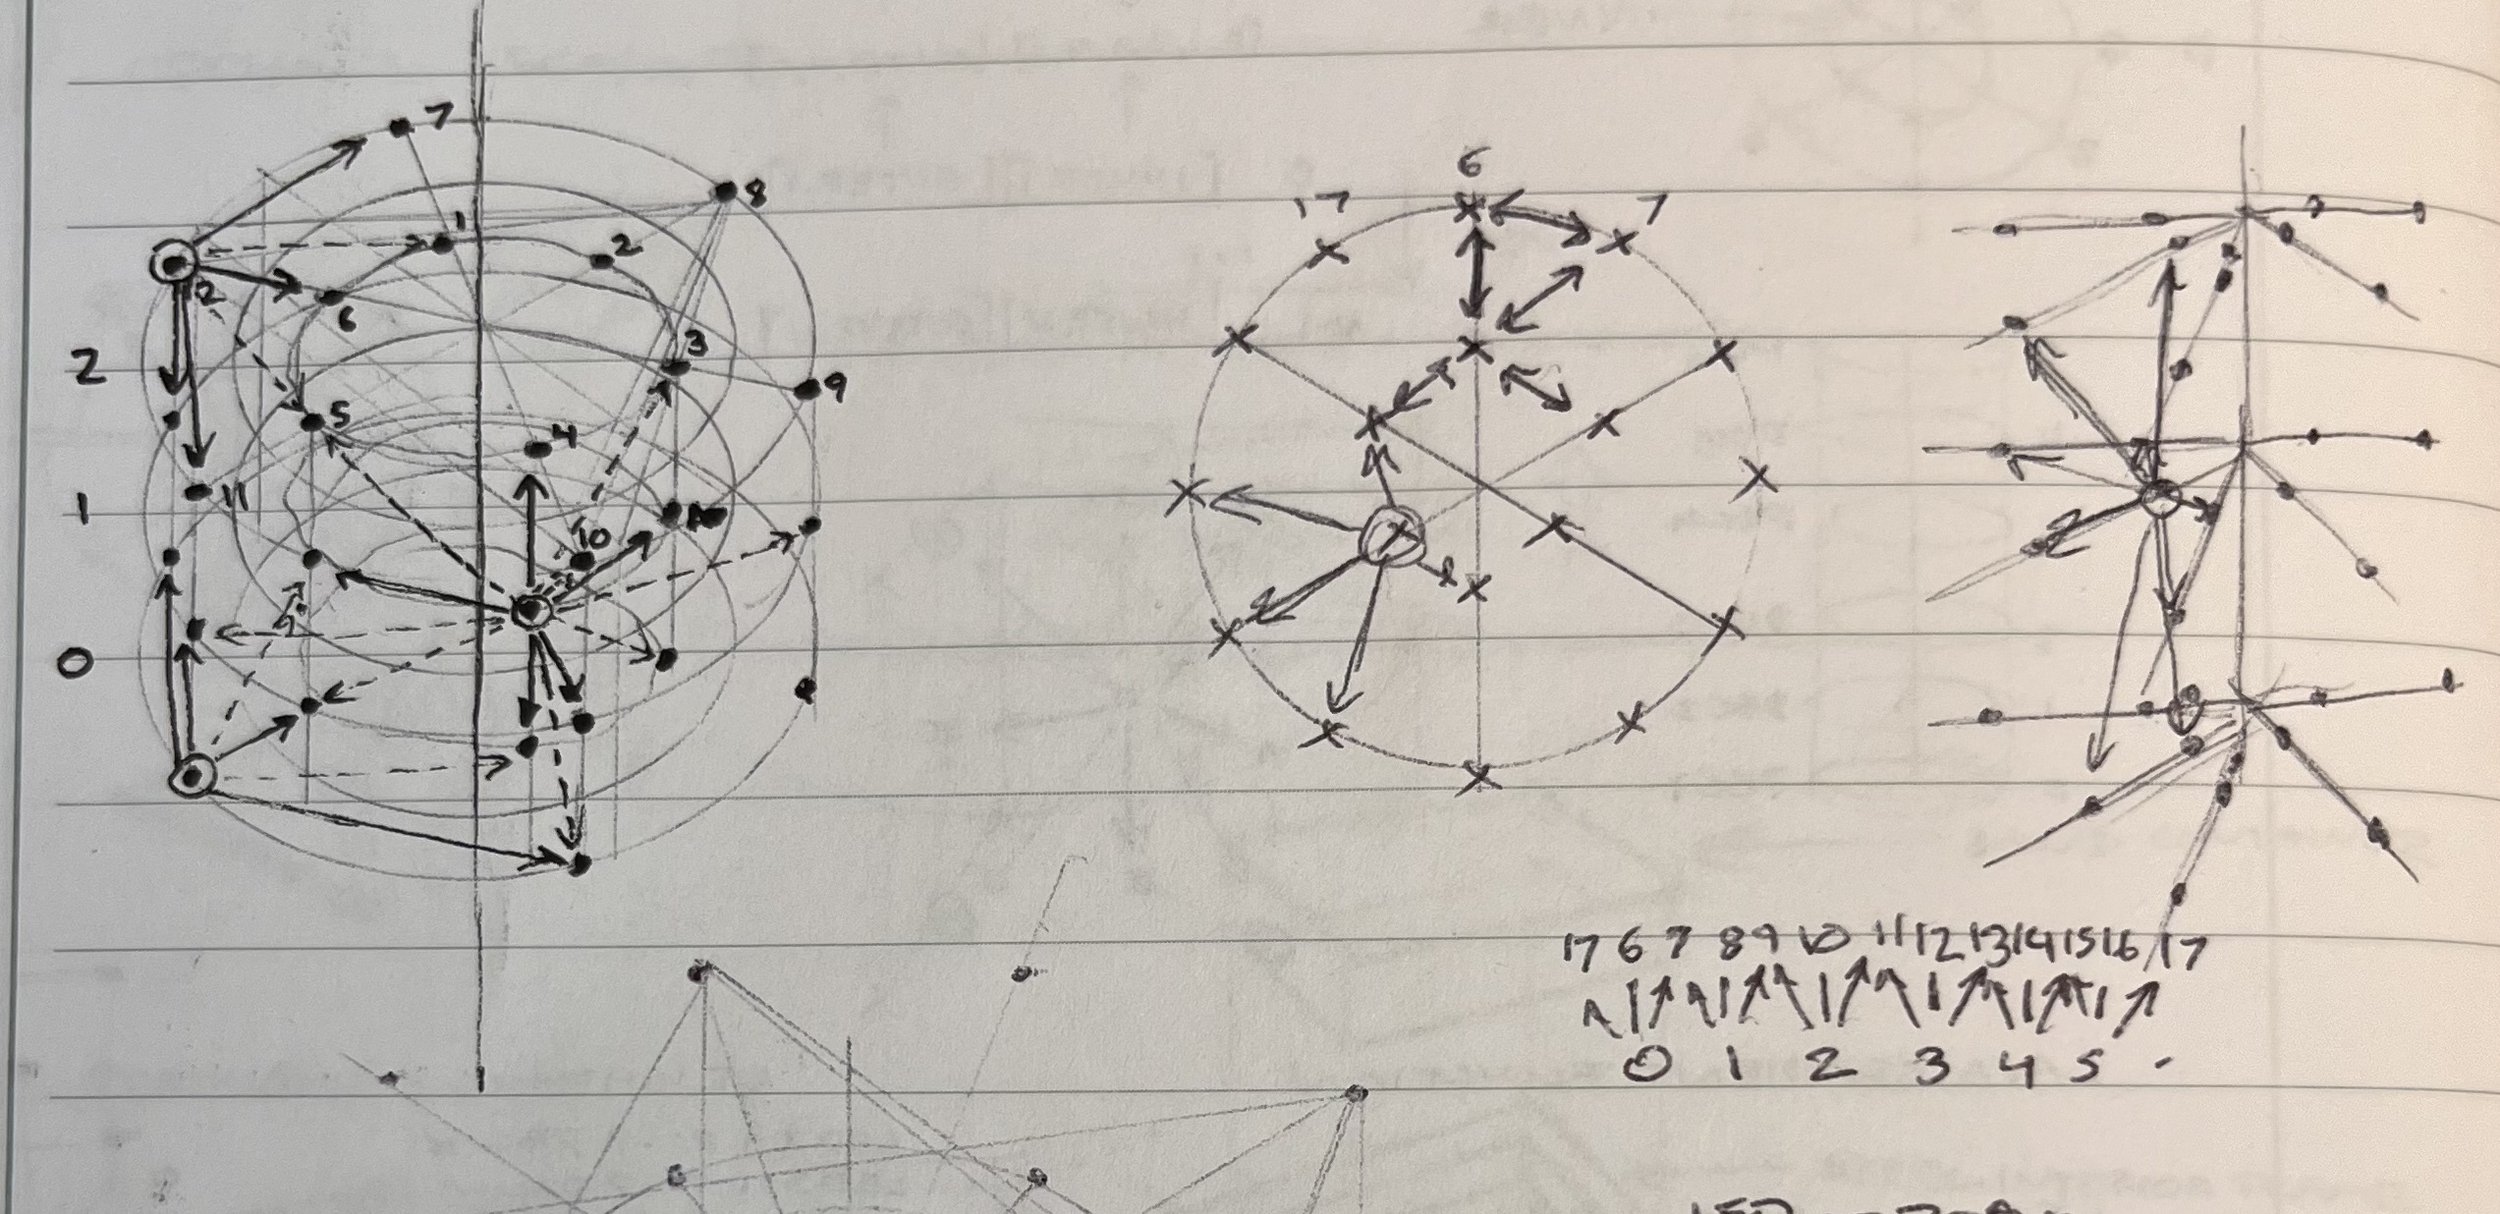 7
8
1
2
12
6
3
2
9
5
4
11
1
10
0
6
17
7
17 6 7 8 9 10 11 12 13 14 15 16 17
0 1 2 3 4 5